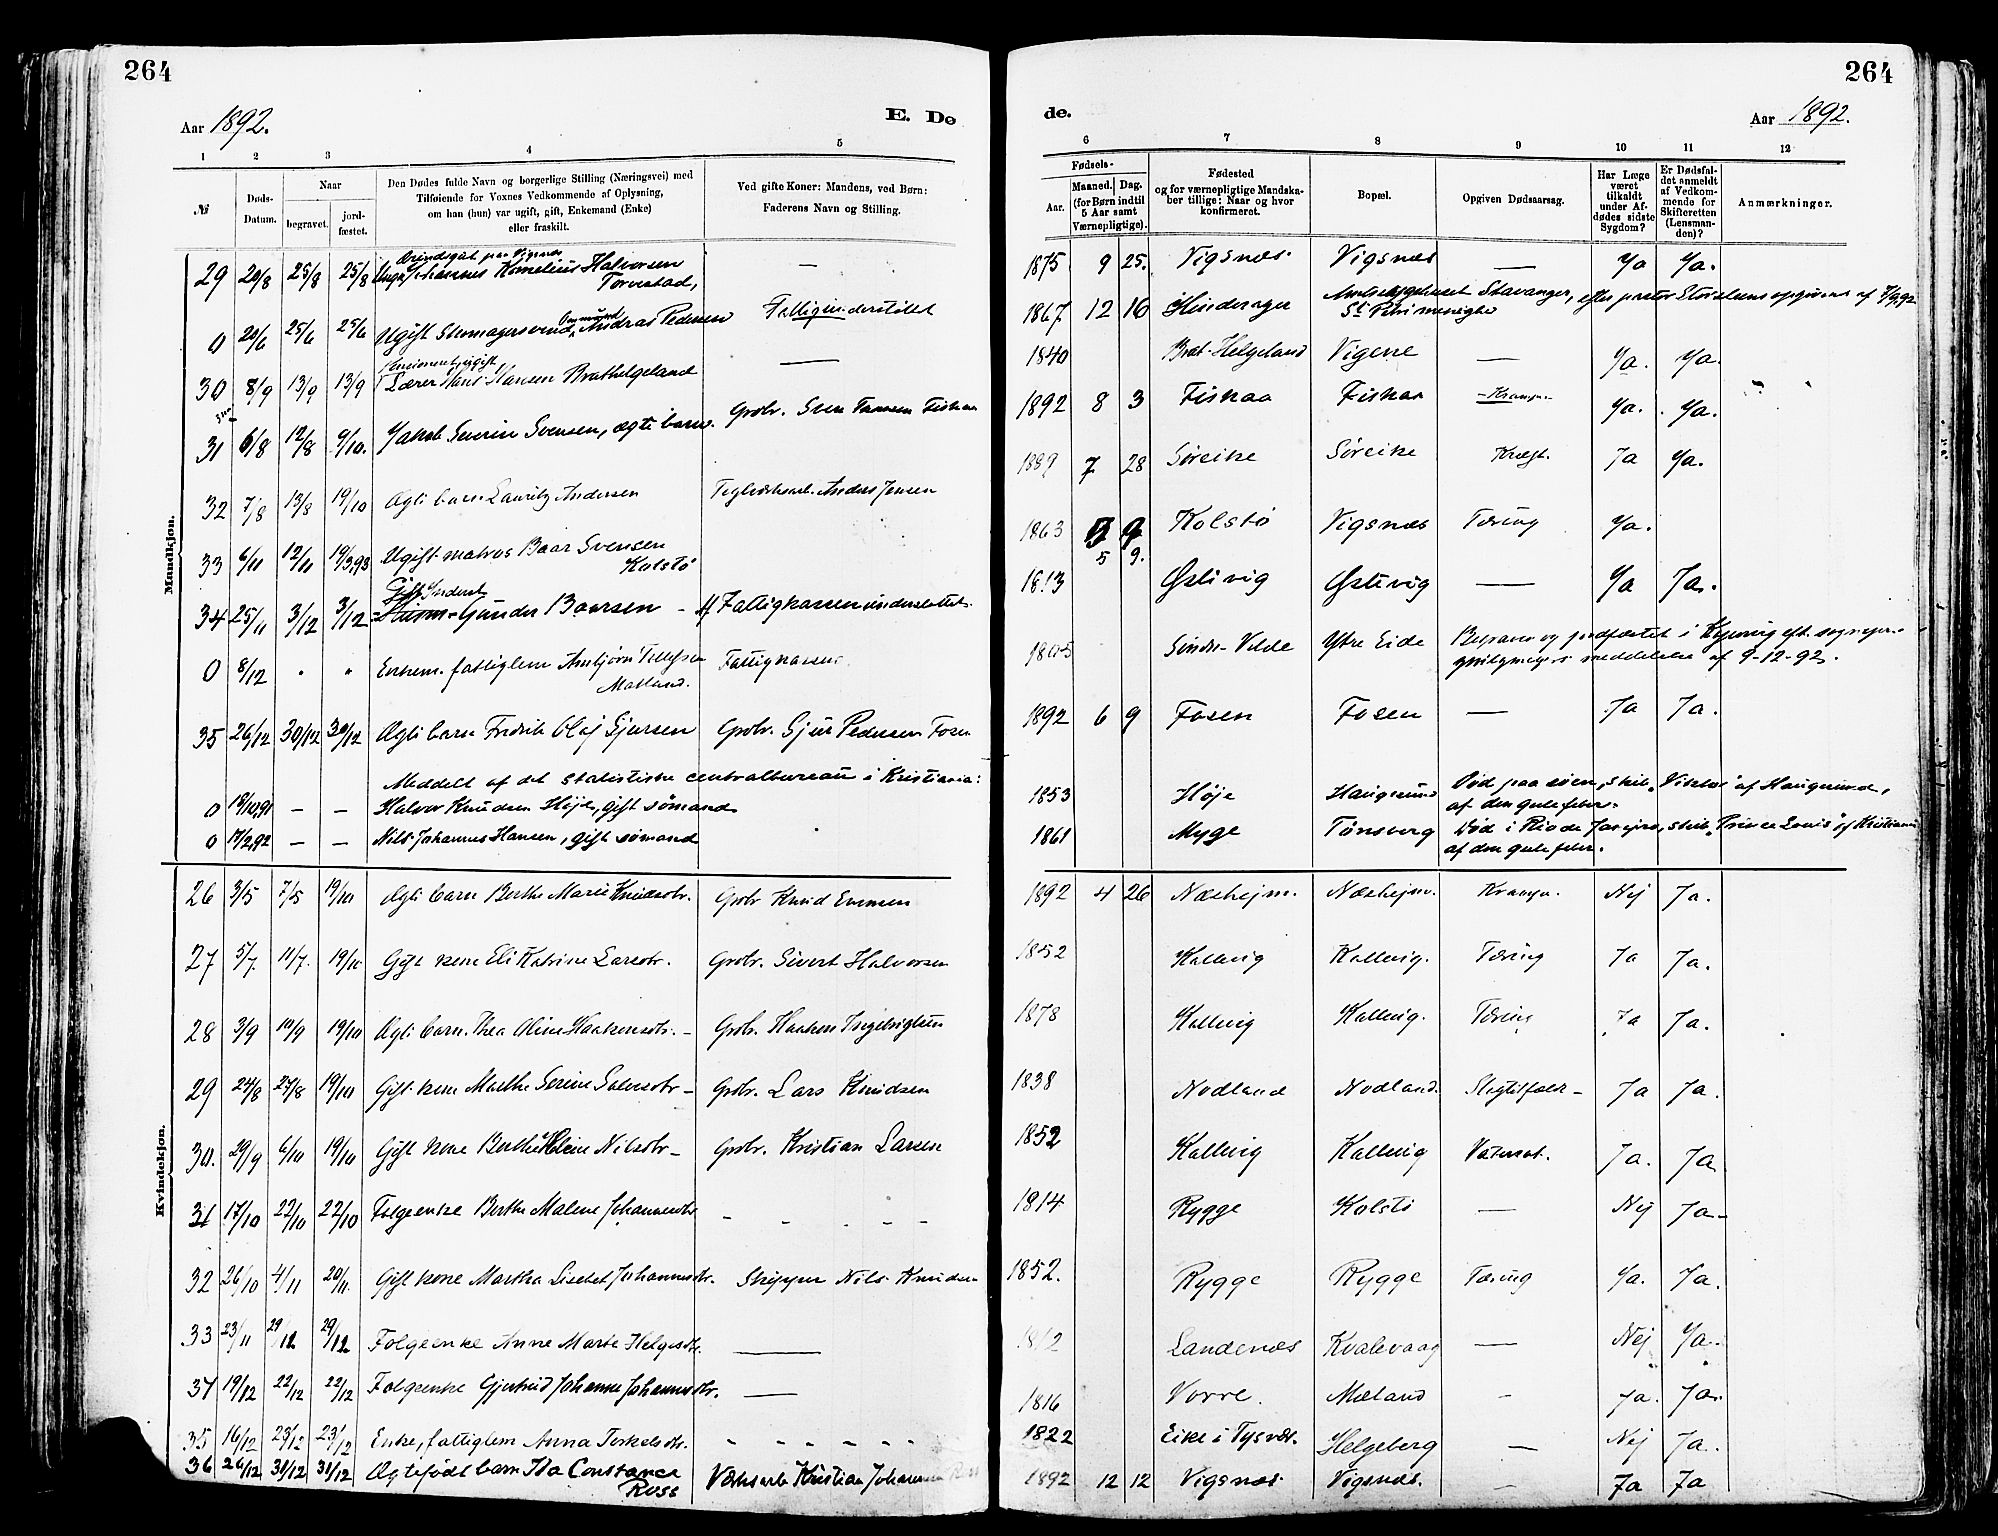 264
Aar 1892.
E. Dø
1 2 3 4 5
№
Døds-Datum.
Naar
begravet.
jord-fæstet.
Den Dødes fulde Navn og borgerlige Stilling (Næringsvei) med
Tilføiende for Voxnes Vedkommende af Oplysning,
om han (hun) var ugift, gift, Enkemand (Enke)
eller fraskilt.
Ved gifte Koner: Mandens, ved Børn:
Faderens Navn og Stilling.
Mandkjøn.
29 20/8 25/8 25/8 Johannes Kornelius Halvorsen
Torvestad,
0 20/6 25/6 25/6 Ugift Andreas Pedersen Fattigunderstøttet
30 8/9 13/9 13/9 Lærer Hans Hansen Brathelgeland —
31 6/8 12/8 9/10. Jakob Severin Svensen, ægte barn. Grbr. Sven
32 7/8 13/8 19/10 Ægte barn Lauritz Andersen Teglværksarb. Anders Jensen
33 6/11 12/11 19/3 93 Ugift matros Baar Svensen
Kolstø
Gift Inderst
34 25/11 3/12 3/12 Gunder Baarsen - Af Fattigkassen understøttet.
0 8/12 " " Enkem. fattiglem Tollefsen Fattigkassen
35 26/12 30/12 30/12 Ægte barn Fredrik Olaj Sjursen Grbr. Sjur Pedersen Fosen
Meddelt af det statistiske centralbureau i Kristiania:
0 — — Halvor Knudsen Høje, gift sømand
0 17/2 92 — — Nils Johannes Hansen, gift sømand
Kvindekjøn.
26 3/5 7/5 19/10 Ægte barn Berthe Marie Knudsdtr. Grbr Knud
27 5/7. 11/7. 19/10 Gift kone Eli Katrine Larsdtr. Grbr. Sivert Halvorsen
28 3/9 10/9 19/10 Ægte barn Thea Oline Haakensdtr. - Grbr. Haaken
29 24/8 27/8 19/10 Gift kone Marthe Serine - Grbr. Lars Knudsen
30. 29/9 6/10 19/10 Gift kone Berthe Helene Nilsdtr - Grbr. Kristian Larsen
31 17/10 22/10 22/10 Folgeenke Berthe Malene Johannesdtr - - - -
32 26/10 4/11 20/11 Gift kone Martha Lisebet Johannesdtr. Skipper Nils Knudsen
33 23/11 29/12 29/12 Folgeenke Anne Marte Helgesdtr. —
34 19/12 22/12 22/12 Folgeenke Gjertrud Johanne Johannesdtr. —
35 16/12 23/12 23/12 Enke, fattiglem Anna Torkelsdtr. - - - - - -
36 26/12 31/12 31/12 Ægtefødt barn Ida Constance Kristian Johannesen Ross
Ross
264
de.
Aar 1892.
6 7 8 9 10 11 12
Fødsels-
Aar.
Maaned. Dag.
(for Børn indtil
5 Aar samt
Værnepligtige).
Fødested
og for værnepligtige Mandska-
ber tillige: Naar og hvor
konfirmeret.
Bopæl.
Opgiven Dødsaarsag.
Har Læge
været
tilkaldt
under Af-
dødes sidste
Sygdom?
Er Dødsfal-
det anmeldt
af Vedkom-
mende for
Skifteretten
(Lensman-
den)?
Anmærkninger.
1875 9 25. Vigsnæs Vigsnæs — Ja Ja.
1867 12 16 Stavanger, efter pastor opgivende af 7/9 92
St. Petri menighed
1840 Brat-Helgeland — Ja. Ja.
1892 8 3 Fiskaa Fiskaa Krampe Ja. Ja.
1889 7 28 Søreike Søreike Ja Ja.
1863 5 9. Kolstø Vigsnæs Tæring Ja.
1813 Østevig Østevig — Ja Ja.
Ytre Eide jordfæstet i
meddelelse af 9-12-92.
1892 6 9 Fosen Fosen — Ja Ja.
1853 Høje Haugesund Død paa søen, skib af Haugesund,
af den gule feber.
1861 Myge Tønsberg Død i Rio de Janejro, skib „Prince Louis" af Kristiania
af den gule feber.
1892 4 26 Næshejm. Næshejm. Krampe. Nej Ja.
1852 Kallevig Kallevig. Tæring Ja Ja.
1878 Kallevig Kallevig. Tæring Ja Ja.
1838 Nodland Nodland. Slagtilfælde - Ja Ja.
1852 Kallevig Kallevig Vatersot. Ja. Ja
1814 Rygge Kolstø — Nej Ja-
1852. Rygge Rygge Tæring Ja. Ja.
1812 Landenæs Kvalevaag — Nej Ja.
1816 Vorre. Mæland - Ja. Ja.
1822 Eike i Tysvær. Helgeberg — Nej Ja.
1892 12 12 Vigsnæs Vigsnæs. — Ja Ja